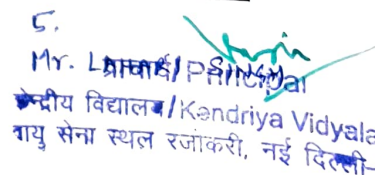 5.
Mr.
प्राचार्य/Principal
केन्द्रीय विद्यालय/Kendriya Vidyala
वायु सेना स्थल रजोकरी, नई दिल्ली-